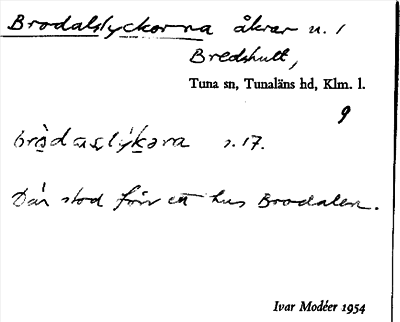 Brodalslyckorna åkrar u. 1
Bredshult,
Tuna sn, Tunaläns hd, Klm. l.
9
s. 17.
Där stod förr ett hus Brodalen.
Ivar Modéer 1954